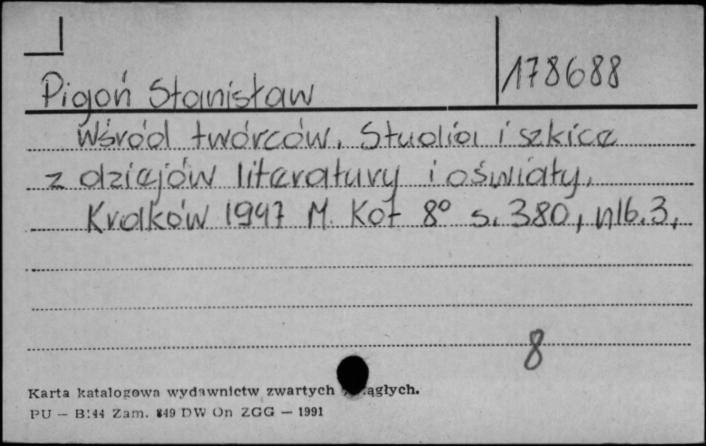 178688
Pigoń Stanisław
Wśród twórców. Studia i szkice
z dziejów literatury i oświaty.
Kraków 1947 M. Kot 8° s. 380, nlb. 3,
8
Karta katalogowa wydawnictw zwartych
PU — B:44 Zam. 849 DW On ZGG — 1991